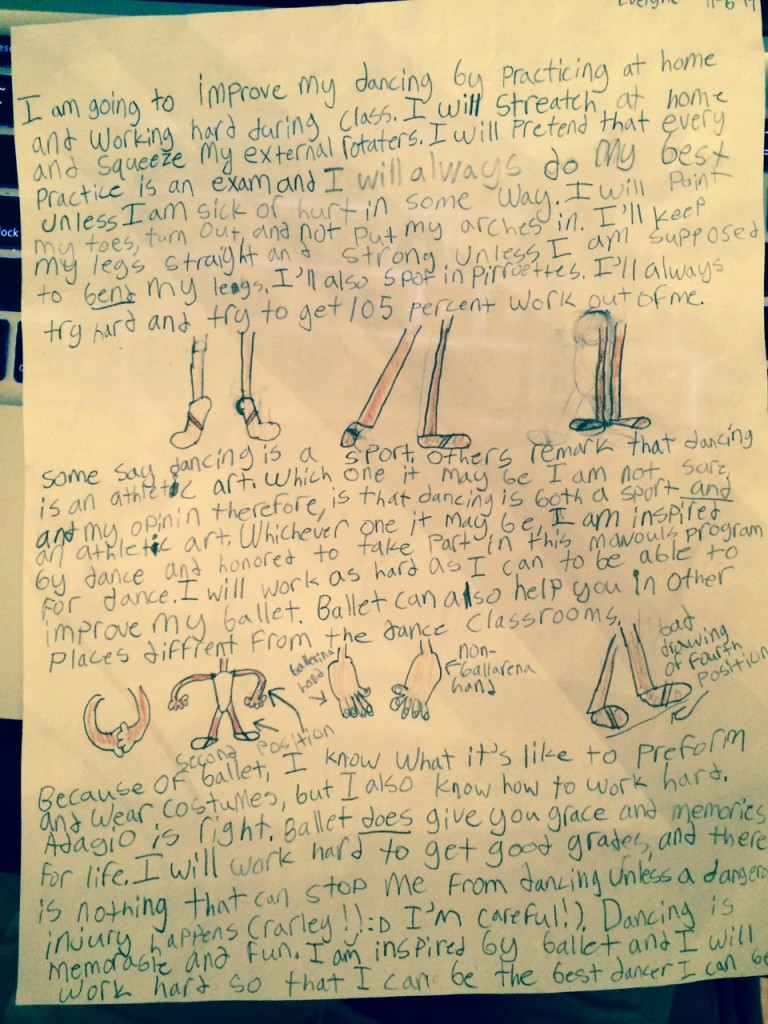 Evelyne 11-6-14
I am going to improve my dancing by practicing at home
and working hard during class. I will streatch at home
and squeeze my external rotaters. I will pretend that every
practice is an exam and I will always do my best
unless I am sick or hurt in some way. I will point
my toes, turn out, and not put my arches in. I'll keep
my legs straight and strong unless I am supposed
to bend my legs. I'll also spot in pirroettes. I'll always
try hard and try to get 105 percent work out of me.
some say dancing is a sport, others remark that dancing
is an athletic art. Which one it may be I am not sure,
and my opinin therefore, is that dancing is both a sport and
an athletic art. Whichever one it may be, I am inspired
by dance and honored to take part in this program
for dance. I will work as hard as I can to be able to
improve my ballet. Ballet can also help you in other
places diffrent from the dance classrooms.
second position
ballerina hand
non-ballarena
hand
bad
drawing
of fourth
position
Because of ballet, I know what it's like to preform
and wear costumes, but I also know how to work hard.
Adagio is right. Ballet does give you grace and memories
for life. I will work hard to get good grades, and there
is nothing that can stop me from dancing unless a dangero
injury happens (rarley!):D I'm careful!). Dancing is
memorable and fun. I am inspired by ballet and I will
work hard so that I can be the best dancer I can be